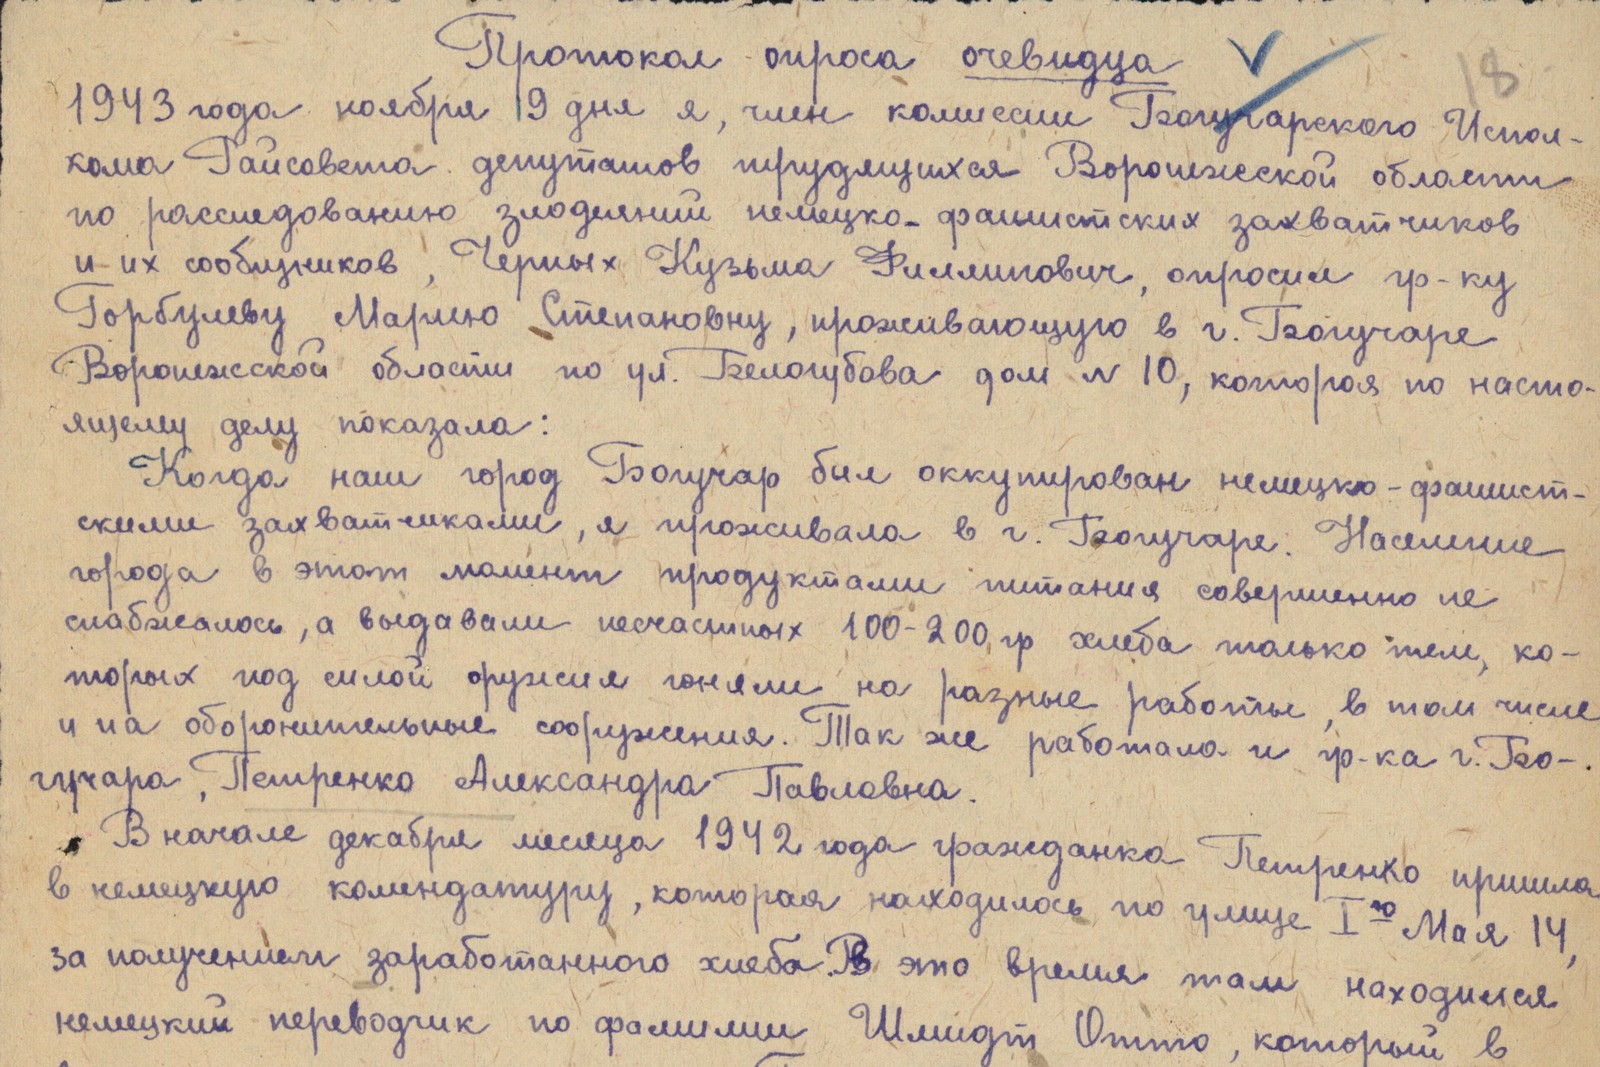 Протокол опроса очевидца
18
1943 года ноября 19 дня я, член комиссии Богучарского Испол-
кома Райсовета депутатов трудящихся Воронежской области
по расследованию злодеяний немецко-фашистских захватчиков
и их сообщников, Черных Кузьма Филлипович, опросил гр-ку
Горбулеву Марию Степановну, проживающую в г. Богучаре
Воронежской области по ул. Белогубова дом N 10, которая по насто-
ящему делу показала:
Когда наш город Богучар был оккупирован немецко-фашист-
скими захватчиками, я проживала в г. Богучаре. Население
города в этот момент продуктами питания совершенно не
снабжалось, а выдавали несчастных 100-200 гр хлеба только тем, ко-
торых под силой оружия гоняли на разные работы, в том числе
и на оборонительные сооружения. Так же работала и гр-ка г. Бо-
гучара, Петренко Александра Павловна.
В начале декабря месяца 1942 года гражданка Петренко пришла
в немецкую комендатуру, которая находилось по улице I го Мая 14,
за получением заработанного хлеба. В это время там находился
немецкий переводчик по фамилии Шмидт Отто, который в